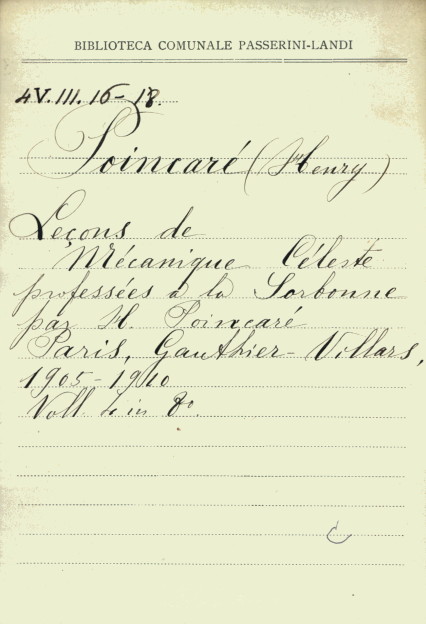 BIBLIOTECA COMUNALE PASSERINI-LANDI
4V.III.16-18.
Poincaré (Henry)
Leçons de
Mécanique Céleste
professées a la Sorbonne
par H. Poincaré
Paris, Gauthier-Villars,
1905-1910
Voll. in 8º.
C